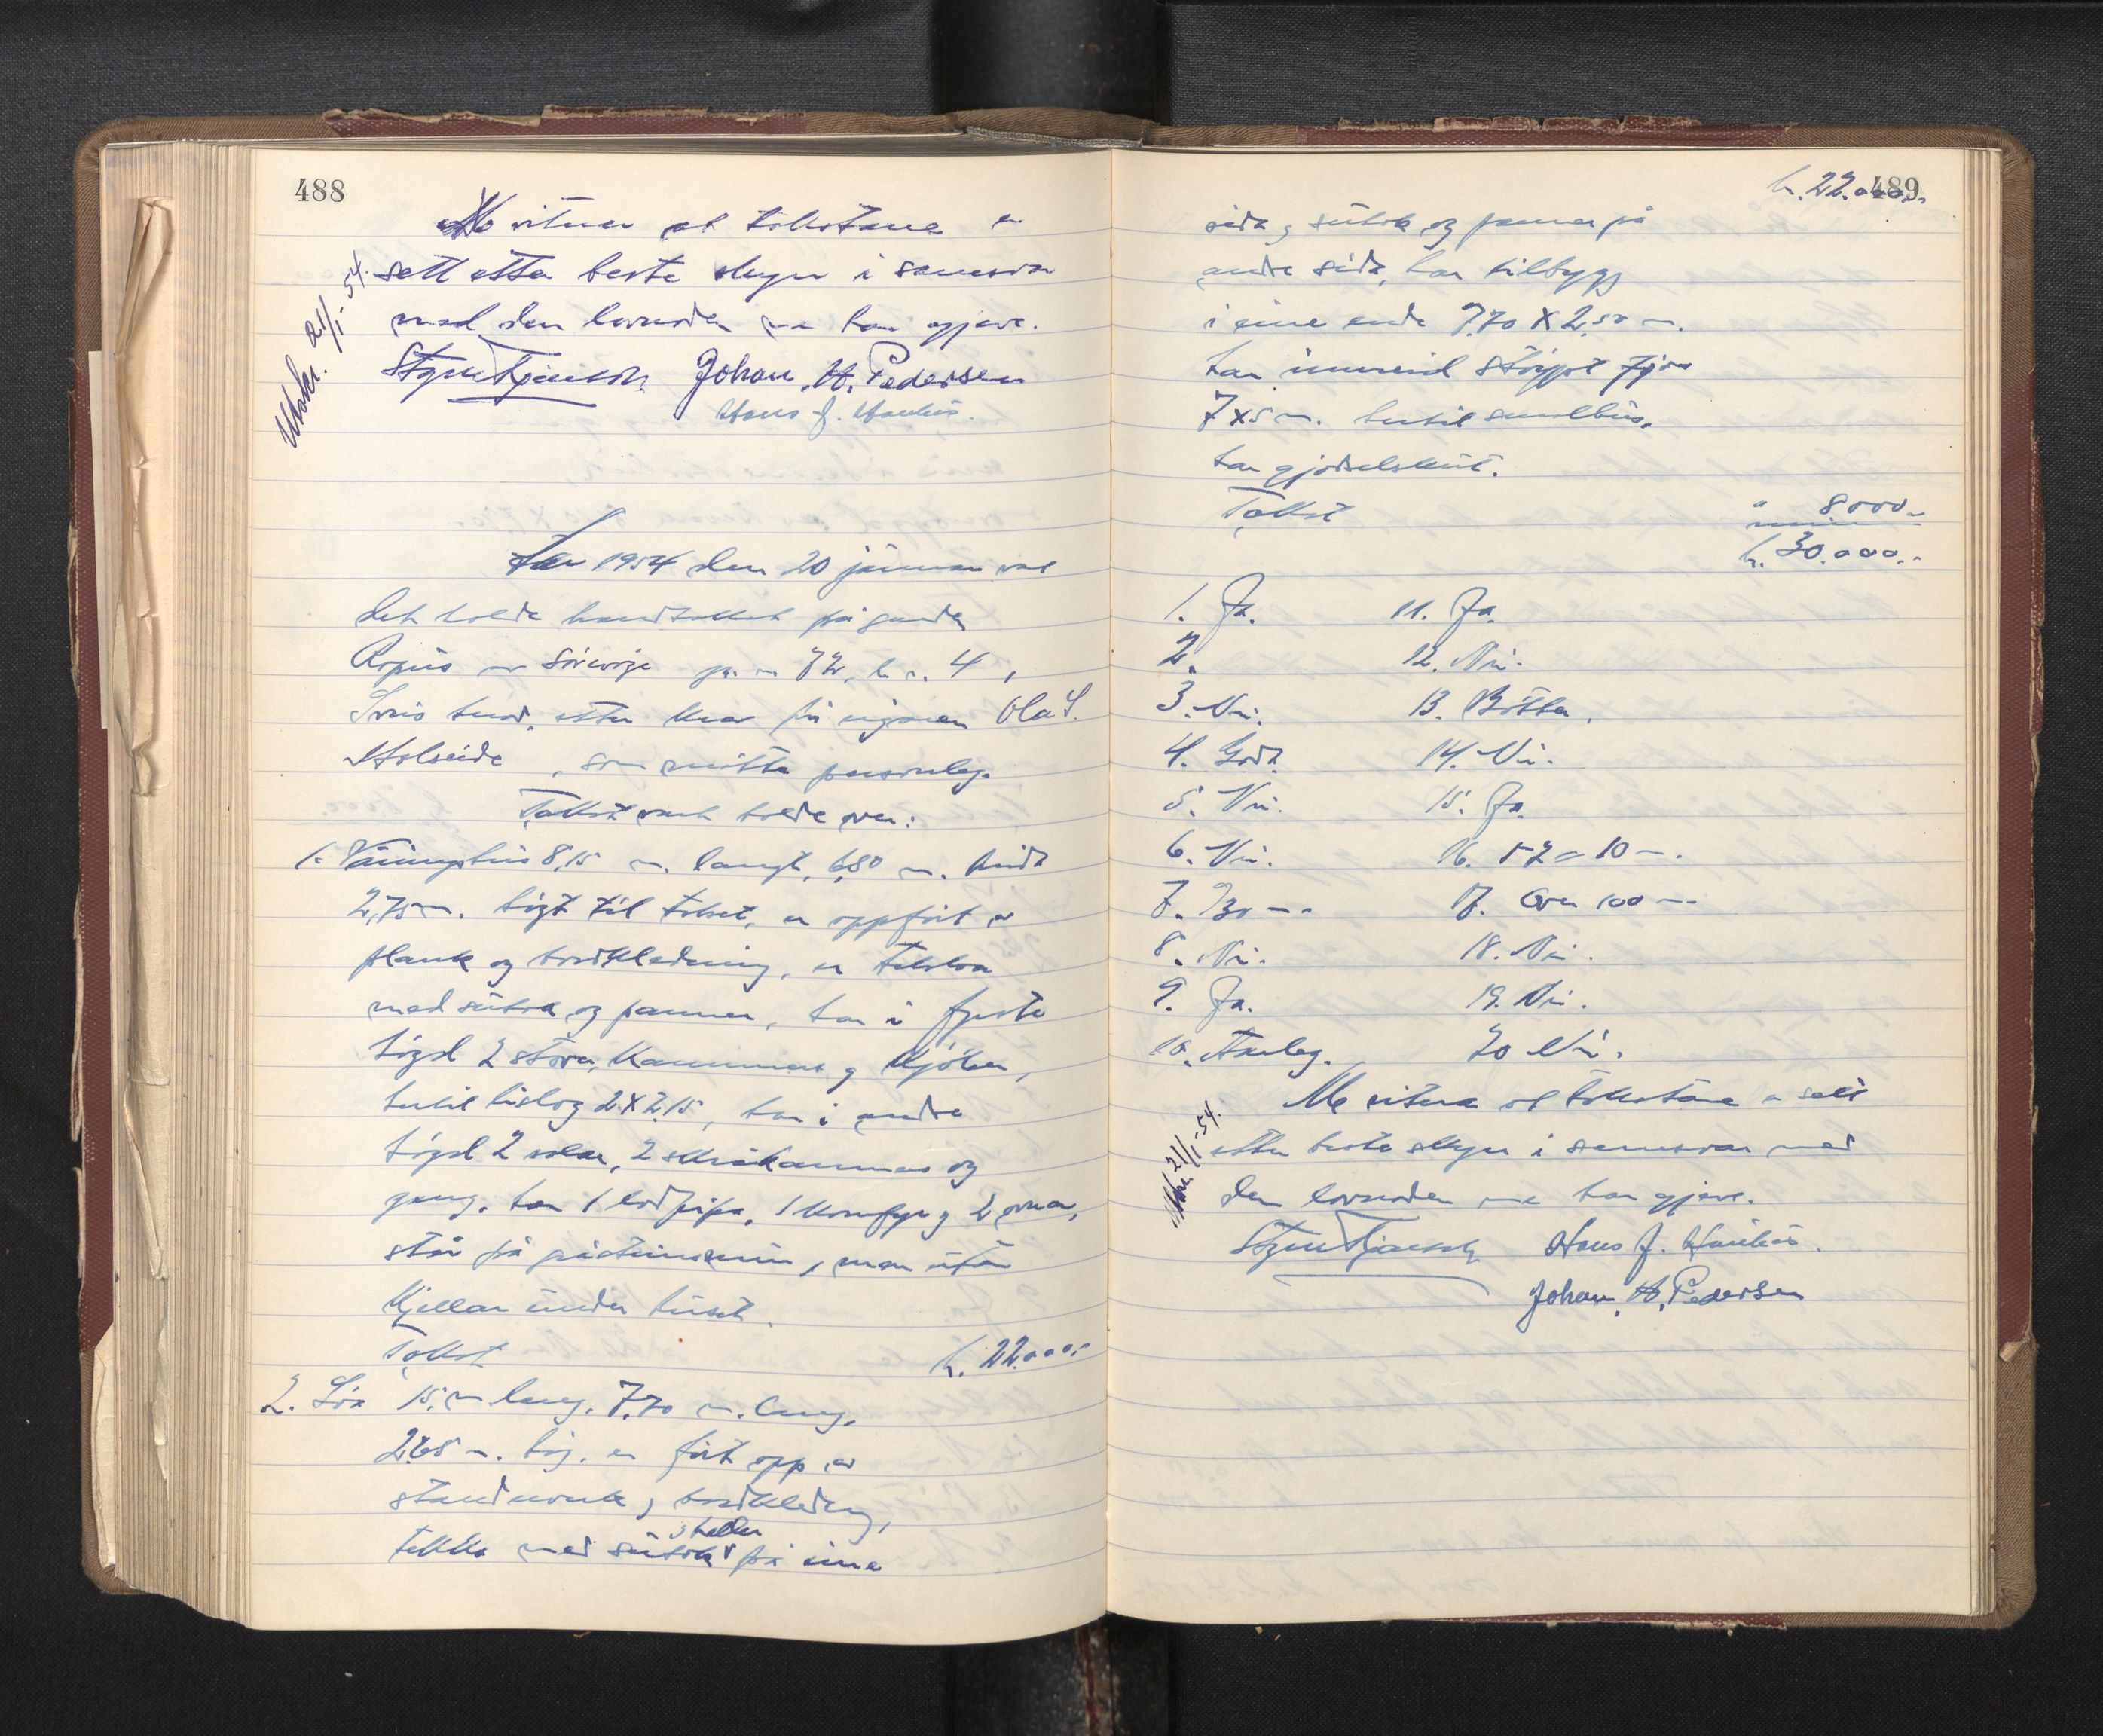 488
Me vitner at takstane er
sett etter beste skyn i samsvar
med den lovnaden me har gjeve.
Johan. H. Pedersen
Hans J.
Utskr. 21/1-54.
År 1954 den 20 januar vart
det halde brandtakst på garden
gr. nr 72, br. nr. 4,
herad, etter krav frå eigaren Ola S.
, som møtte personleg.
Takst vart halde over:
1. Våningshus 8,15 m. langt, 6,80 m. breidt
2,75 m. høgt til taket, er oppført av
plank og bordkledning, er tekka
med sutak og panner, har i fyrste
høgd 2 stover, kammers og kjøken,
butil bislag 2 x 2,15, har i andre
høgd 2 salar, 2 skråkammers og
gang, har 1 lodpipa, 1 komfyr og 2 omnar,
står på gråsteinsmur, men utan
kjellar under huset.
Takst kr. 22.000,-
2. Löa 15 m lang, 7,70 m.
2,65 m. høg, er ført opp av
og bordkledning,
tekka med sutak på eine
489
kr. 22.000,-
sida, sutak og panner på
andre sida, har tilbygg
i eine ende 7,70 x 2,50 m.
har innreid støypt fjøs
7 x 5 m. butil smalhus,
har gjødselskut.
Takst " 8000,-
kr. 30.000,-
1. Ja. 11. Ja.
2. 12. Nei.
3. Nei. 13. Bøtter.
4. Godt. 14. Nei.
5. Nei. 15. Ja.
6. Nei. 16. 52 = 10 m.
7. 730 m. 17. Over 100 m.
8. Nei. 18. Nei.
9. Ja. 19. Nei.
10. Farleg. 20 Nei.
Me vitnar at takstane er sett
etter beste skyn i samsvar med
den lovnaden me har gjeve.
Hans J.
Johan. H. Pedersen
Utskr. 21/1-54.